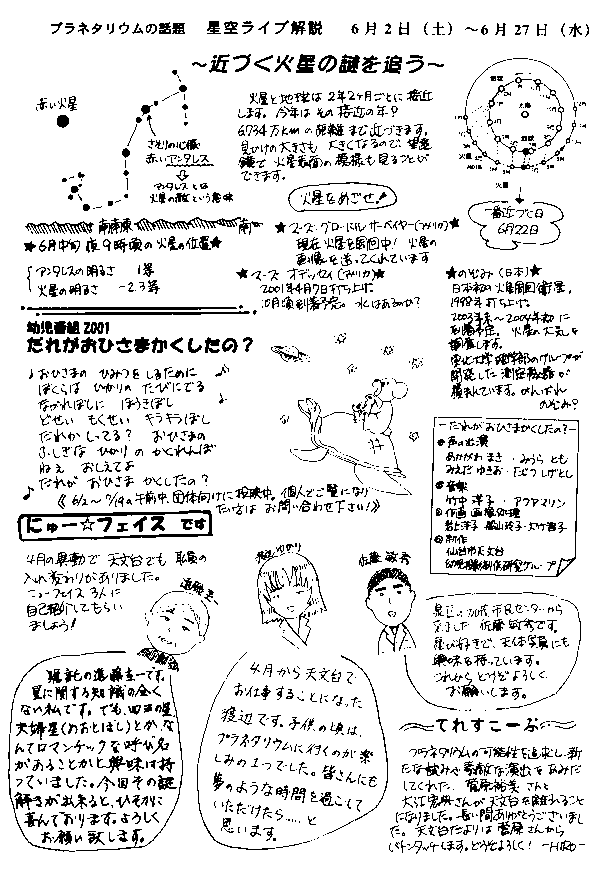 プラネタリウムの話題 星空ライブ解説 6月2日（土）～6月27日（水）
～近づく火星の謎を追う～
赤い火星
さそりの心臓
赤いアンタレス
アンタレスとは
火星の敵という意味
南南東
南
★6月中旬夜9時頃の火星の位置★
アンタレスの明るさ 1等
火星の明るさ －2.3等
火星と地球は2年2ヶ月ごとに接近
します。今年はその接近の年？
6734万kmの距離まで近づきます。
見かけの大きさも大きくなるので、望遠
鏡で火星表面の模様も見ることが
できます。
太陽
地球
火星
最接近の日
6月22日
火星をめざせ！
★マーズ・グローバルサーベイヤー(アメリカ)★
現在火星を周回中！火星の
画像を送ってくれています
★マーズ オデッセイ(アメリカ)★
2001年4月7日打ち上げ。
10月頃到着予定。水はあるのか？
★のぞみ(日本)★
日本初の火星周回衛星。
1998年打ち上げ。
2003年末～2004年初に
到着予定。火星の大気を
調査します。
東北大学理学部のグループが
開発した測定機器が
積まれています。がんばれ
のぞみ？
幼児番組2001
だれがおひさまかくしたの？
♪おひさまの ひみつを しるために
ぼくらは ひかりの たびにでる
ながれぼしに ほうきぼし
どせい もくせい キラキラぼし
だれか しってる？ おひさまの
ふしぎな ひかりの かくれんぼ
ねぇ おしえてよ
♪だれが おひさま かくしたの？
《6/2～7/19の午前中、団体向けに投映中。個人でご覧になり
たい方は お問い合わせ下さい！》
－だれが おひさまかくしたの？－
◎声の出演
あかがわ まき・みうら とも
みえだ ゆきお・たじつ しげとし
◎音楽
竹中 洋子・アクアマリン
◎作画 画像処理
◎制作
仙台市天文台
にゅー☆フェイス です
4月の異動で 天文台でも 職員の
入れ変わりがありました。
ニューフェイス 3人に
自己紹介してもらい
ましょう！
遠藤圭一
渡辺ゆかり
佐藤 敏秀
嘱託の遠藤圭一です。
星に関する知識の全く
ない私です。でも、
夫婦星(めおとぼし)とか、な
んてロマンチックな呼び名
があることかと興味は持
っていました。今回その謎
解きが出来ると、ひそかに
喜んております。よろしく
お願い致します。
4月から天文台で
お仕事することになった
渡辺です。子供の頃は、
プラネタリウムに行くのが楽
しみの1つでした。皆さんにも
夢のような時間を過ごして
いただけたら……と
思います。
市民センターから
来ました 佐藤 敏秀です。
星が好きで、天体写真にも
興味を持っています。
これから どうぞよろしく
お願いします。
～てれすこーぷ～
プラネタリウムの可能性を追求し、新
たな試みや素敵な演出をあみだ
してくれた、菅原裕美さんと
大江宏典さんが天文台を離れることに
なりました。長い間ありがとうございまし
た。天文台だよりは 菅原さんから
バトンタッチします。どうぞよろしく！